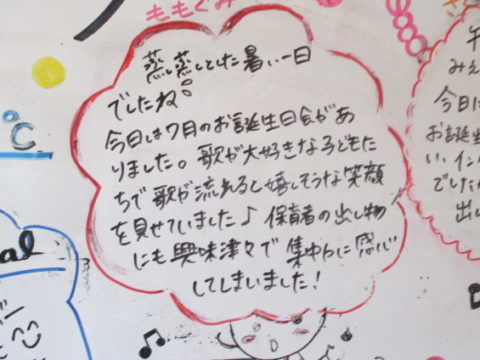 ももぐみ
蒸し蒸しとした暑い一日
でしたね。
今日は7月のお誕生日会があ
りました。歌が大好きな子どもた
ちで歌が流れると嬉しそうな笑顔
を見せていました♪ 保育者の出し物
にも興味津々で集中に感じ
してしまいました!
℃
al
今日は
お誕生
でした
出し